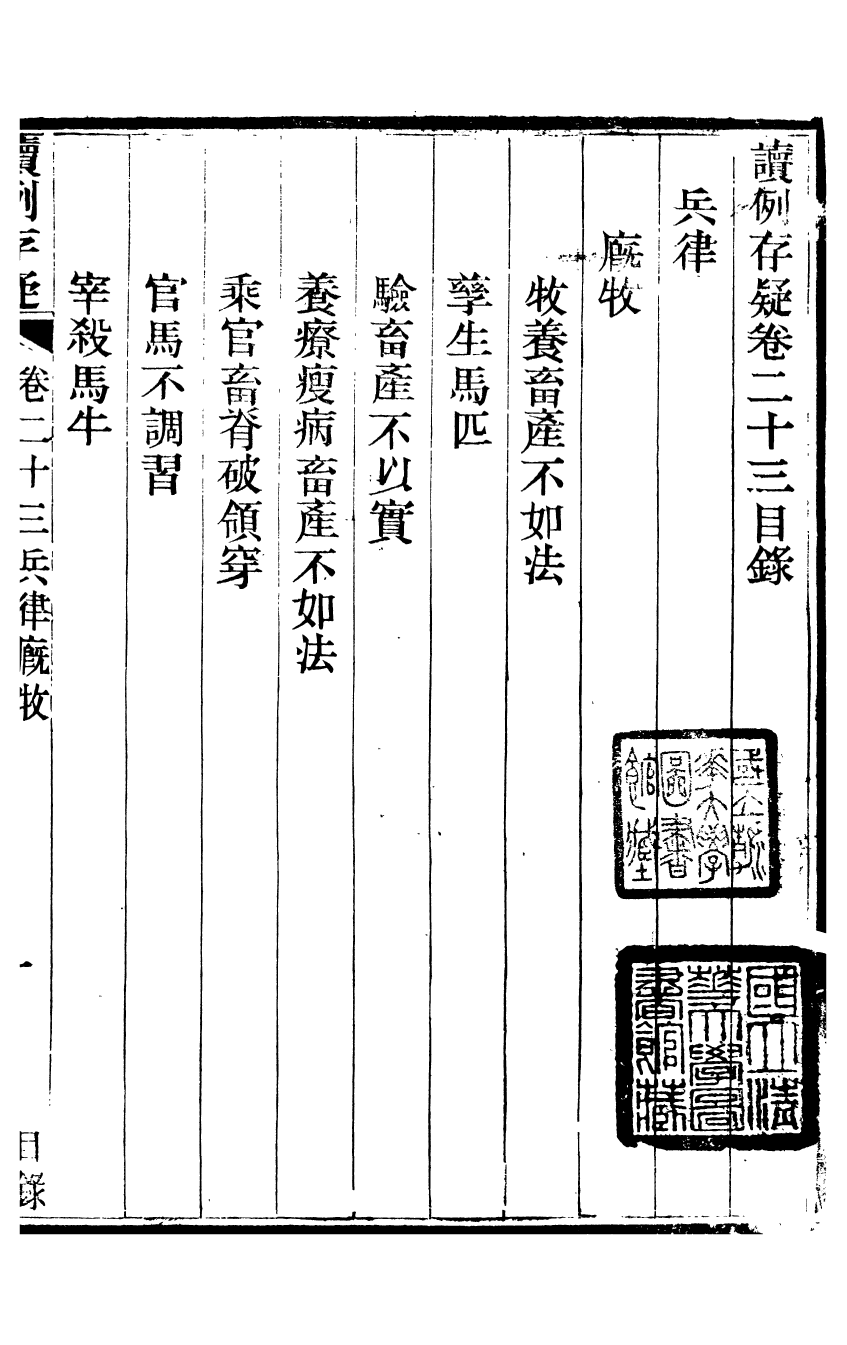 讀例存疑卷二十三目錄
兵律
廐牧
牧養畜產不如法
孳生馬匹
驗畜產不以實
養療瘦病畜產不如法
乘官畜脊破領穿
官馬不調習
宰殺馬牛
讀例存疑 卷二十三兵律廐牧 一 目錄
國立清
華大學
圖書
館藏
國立清
華大學圖
書館藏